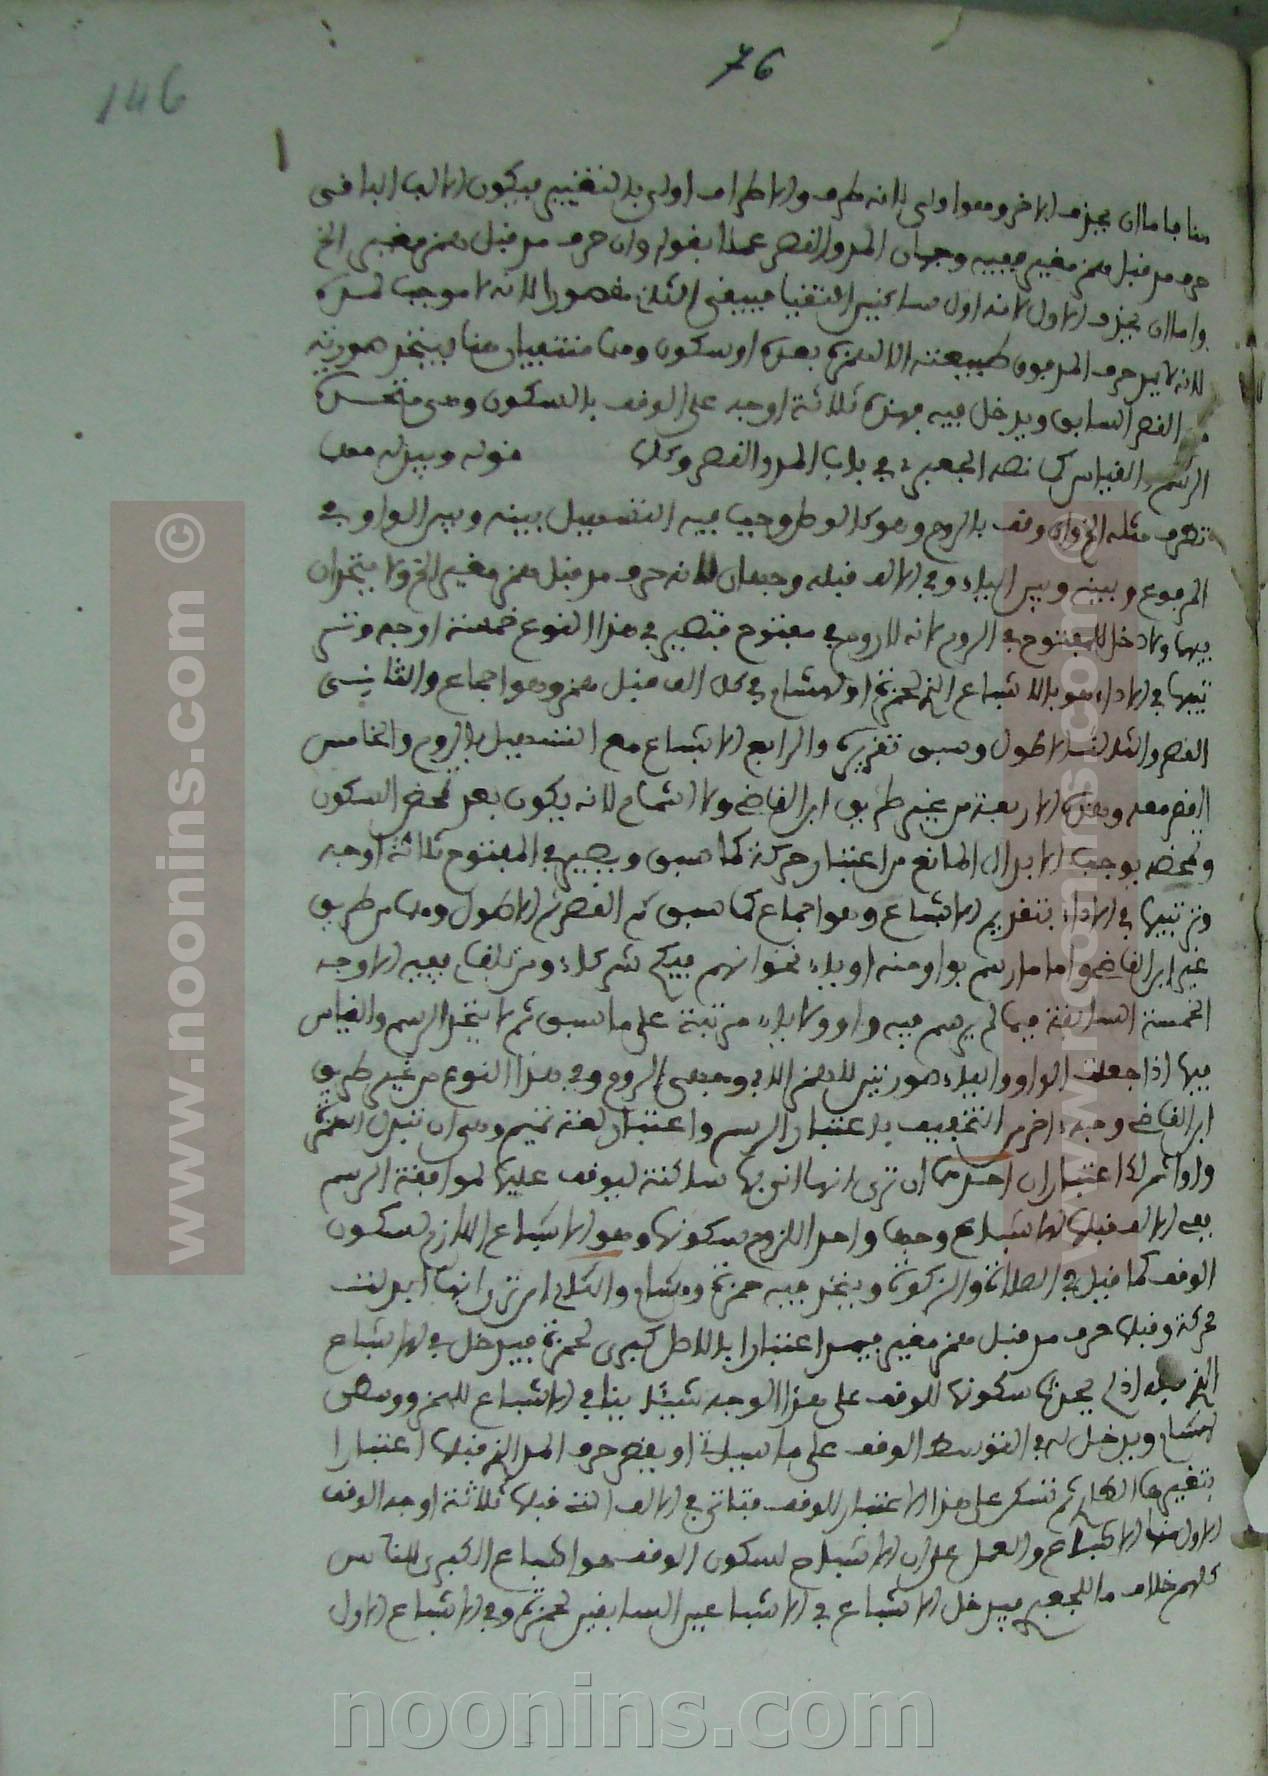 76
146
هنا فاما ان يحذف الاخر وهوا ولى لانه طرف والاطراف اولى بالتغيير فيكون الالف الباقى
حرف مد قبل همز مغير ففيه وجهان المد والقصر عملا بقوله وان حرف مد قبل همز مغير الخ
واما ان يحذف الاول لانه اول ساكنين التقيا فيبقى الثانى مقصورا لانه لا موجب لمده
لانه لا يمد حرف المد فوق طبيعته الا لهمزة بعده او سكون وهما منتفيان هنا فيتحد صورته
القصر السابق ويدخل فيه بهذه ثلاثة اوجه على الوقف بالسكون وهى
الرسم القياس كما نصه الجعبرى فى باب المد والقصر قوله وبين له معا
حرف مثله الخ وان وقف بالروم وهو كالوصل وجب فيه التسهيل بينه وبين الواو فى
المرفوع وبينه وبين الياء وفى الالف قبله وجهان لانه حرف مد قبل همز مغير الخ ولا
فيها ولا دخل للمفتوح فى الروم لانه لا روم فى مفتوح فتصير فى هذا النوع خمسة اوجه وتر
تيبها فى الاداء هو بالاشباع لحمزة او لهشام فى كل الف قبل همز وهو اجماع والثانى
القصر والثالث الاطول وسبق تقريره والرابع الاشباع مع التسهيل بالروم والخامس
القصر معه وهذه الاربعة من غير طريق ابن القاضى ولا اشمام لانه يكون بعد محض السكون
ومحضه يوجب الابدال المانع من اعتبار حركة كما سبق ويصير فى المفتوح ثلاثة اوجه
وترتيبها فى الاداء بتقديم الاشباع وهو اجماع كما سبق ثم القصر ثم الاطول وهما من طريق
غير ابن القاضى واما ما رسم بواو منه او ياء نحو انهم فيكم شركاء ومن تلقاء ففيه الاوجه
الخمسة السابقة فيما لم يرسم فيه واو ولا ياء مرتبة على ما سبق ثم لا يتحد الرسم والقياس
فيها اذا جعلت الواو والياء صورتين للهمز الا فى وجهى الروم وفى هذا النوع من غير طريق
ابن القاضى وجه اخر من التخفيف باعتبار الرسم واعتبار لغة تميم وهى ان تبدل الهمزة
واوا ثم لك اعتباران احدهما ان ترى انها اتى بها ساكنة ليوقف عليها لموافقة الرسم
ففى الالف قبلها الاشباع وجها واحدا للزوم سكونها وهو الاشباع اللازم لسكون
الوقف كما قيل فى الصلاة والزكوة ويتحد فيه حمزة وهشام والثانى ان ترى انها ابدلت
محركة وقبلها حرف مد قبل همز مغير فيمد اعتبارا بالاصل كبرى لحمزة فيدخل فى الاشباع
الذى قبله اذ لم يحدث سكونها للوقف على هذا الوجه شيئا ينافى الاشباع للهمز ووسطى
لهشام ويدخل له فى التوسط الوقف على ما سياتى او يقصر حرف المد الذى قبلها اعتبارا
بتغيرها الطارى ثم تسكن على هذا الاعتبار للوقف فتاتى فى الالف التى قبلها ثلاثة اوجه الوقف
الاول منها الاشباع والعمل على ان الاشباع لسكون الوقف هو اشباع الكبرى للناس
كلهم خلاف ما للجعبرى فيدخل الاشباع فى الاشباعين السابقين لحمزة وفى الاشباع الاول